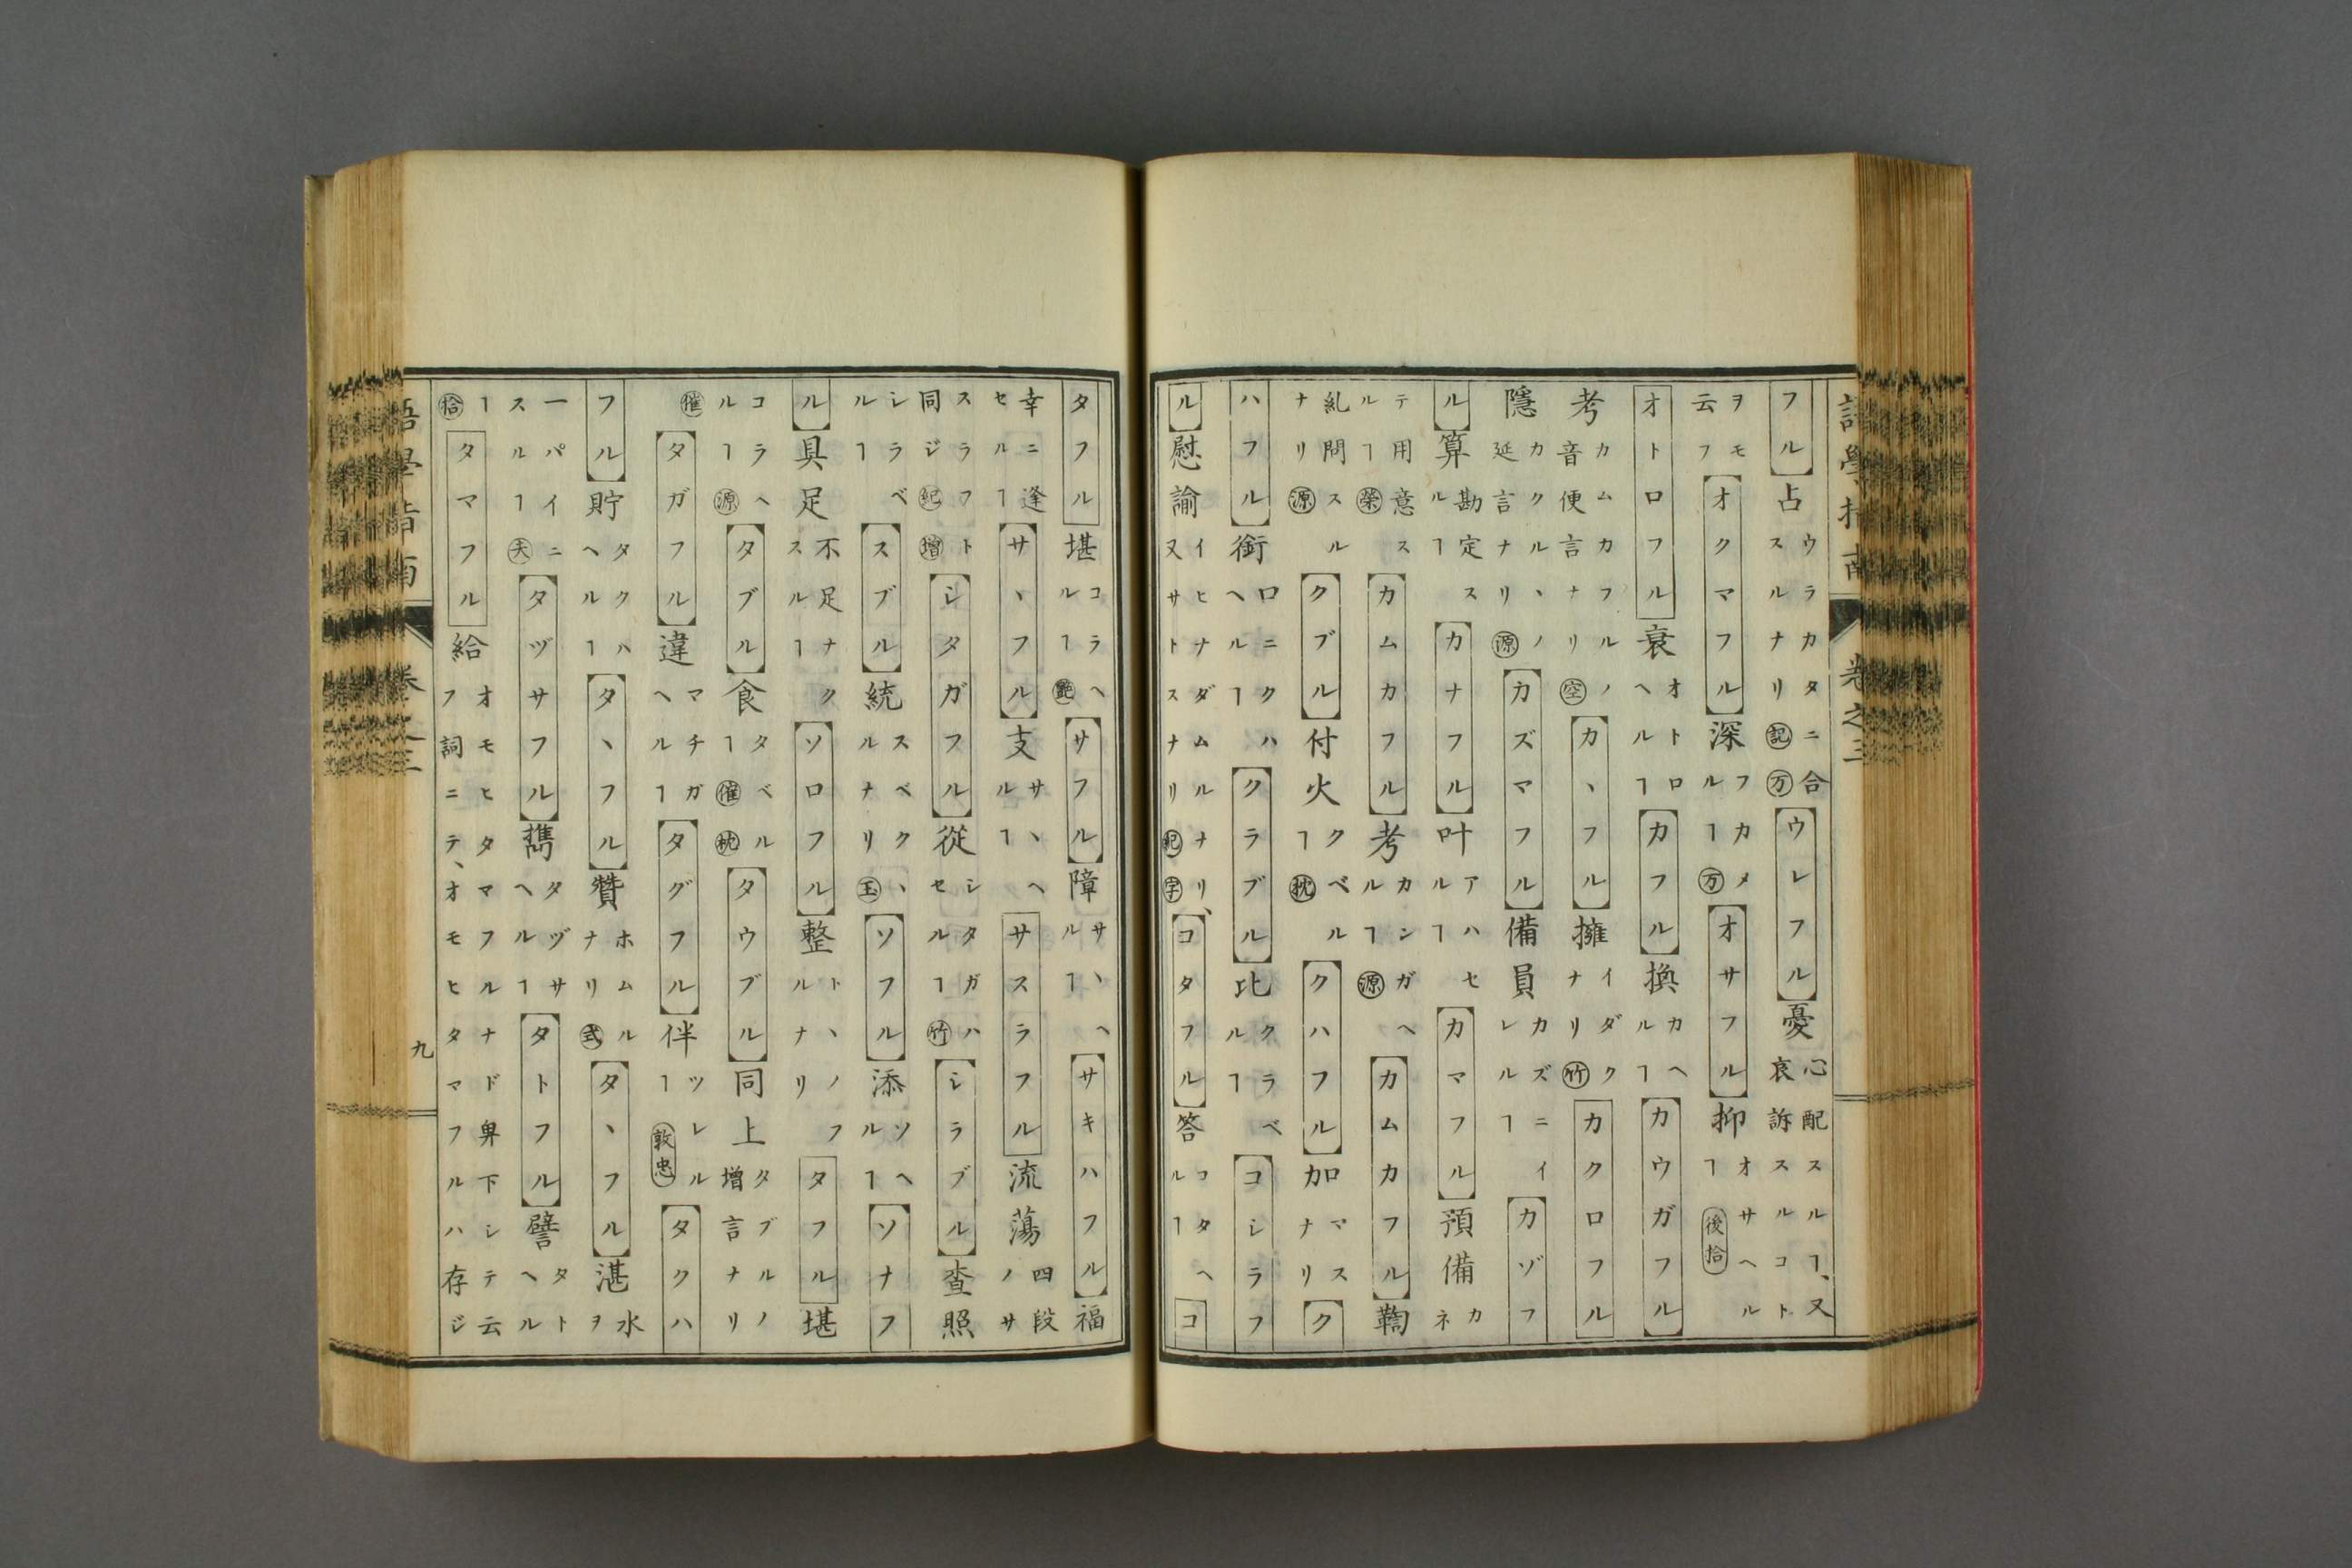 語學指南 卷之三
フル 占 ウラカタニ合スルナリ 記 万 ウレフル 憂 心配スルヿ、又哀訴スルコト
ヲモ云フ オクマフル 深 フカメルヿ 万 オサフル 抑 オサヘルヿ 後拾
オトロフル 衰 オトロヘルヿ カフル 換 カヘルヿ カウガフル
考 カムカフルノ音便言ナリ 空 カヽフル 擁 イダクナリ 竹 カクロフル
隱 カクルヽノ延言ナリ 源 カズマフル 備員 カズニイレルヿ カゾフ
ル 算 勘定スルヿ カナフル 叶 アハセルヿ カマフル 預備 カネ
テ用意スルヿ 榮 カムカフル 考 カンガヘルヿ 源 カムカフル 鞫
糺問スルナリ 源 クブル 付火 クベルヿ 枕 クハフル 加 マスナリ ク
ハフル 銜 口ニクハヘルヿ クラブル 比 クラベルヿ コシラフ
ル 慰諭 イヒナダムルナリ、又サトスナリ 紀 字 コタフル 答 コタヘルヿ コ
タフル 堪 コラヘルヿ 艶 サフル 障 サヽヘルヿ サキハフル 福
幸ニ逢セルヿ サヽフル 支 サヽヘルヿ サスラフル 流蕩 四段ノサ
スラフト同ジ 紀 增 シタガフル 從 シタガハセルヿ 竹 シラブル 査照
シラベルヿ スブル 統 スベクヽルナリ 玉 ソフル 添 ソヘルヿ ソナフ
ル 具足 不足ナクスルヿ ソロフル 整 トヽノフルナリ タフル 堪
コラヘルヿ 源 タブル 食 タベルヿ 催 枕 タウブル 同上 タブルノ增言ナリ
催 タガフル 違 マチガヘルヿ タグフル 伴 ツレルヿ 敦忠 タクハ
フル 貯 タクハヘルヿ タヽフル 贊 ホムルナリ 式 タヽフル 湛 水ヲ
一パイニスルヿ 天 タヅサフル 擕 タヅサヘルヿ タトフル 譬 タトヘル
ヿ 拾 タマフル 給 オモヒタマフルナド卑下シテ云フ詞ニテ、オモヒタマフルハ存ジ
語學指南 卷之三 九